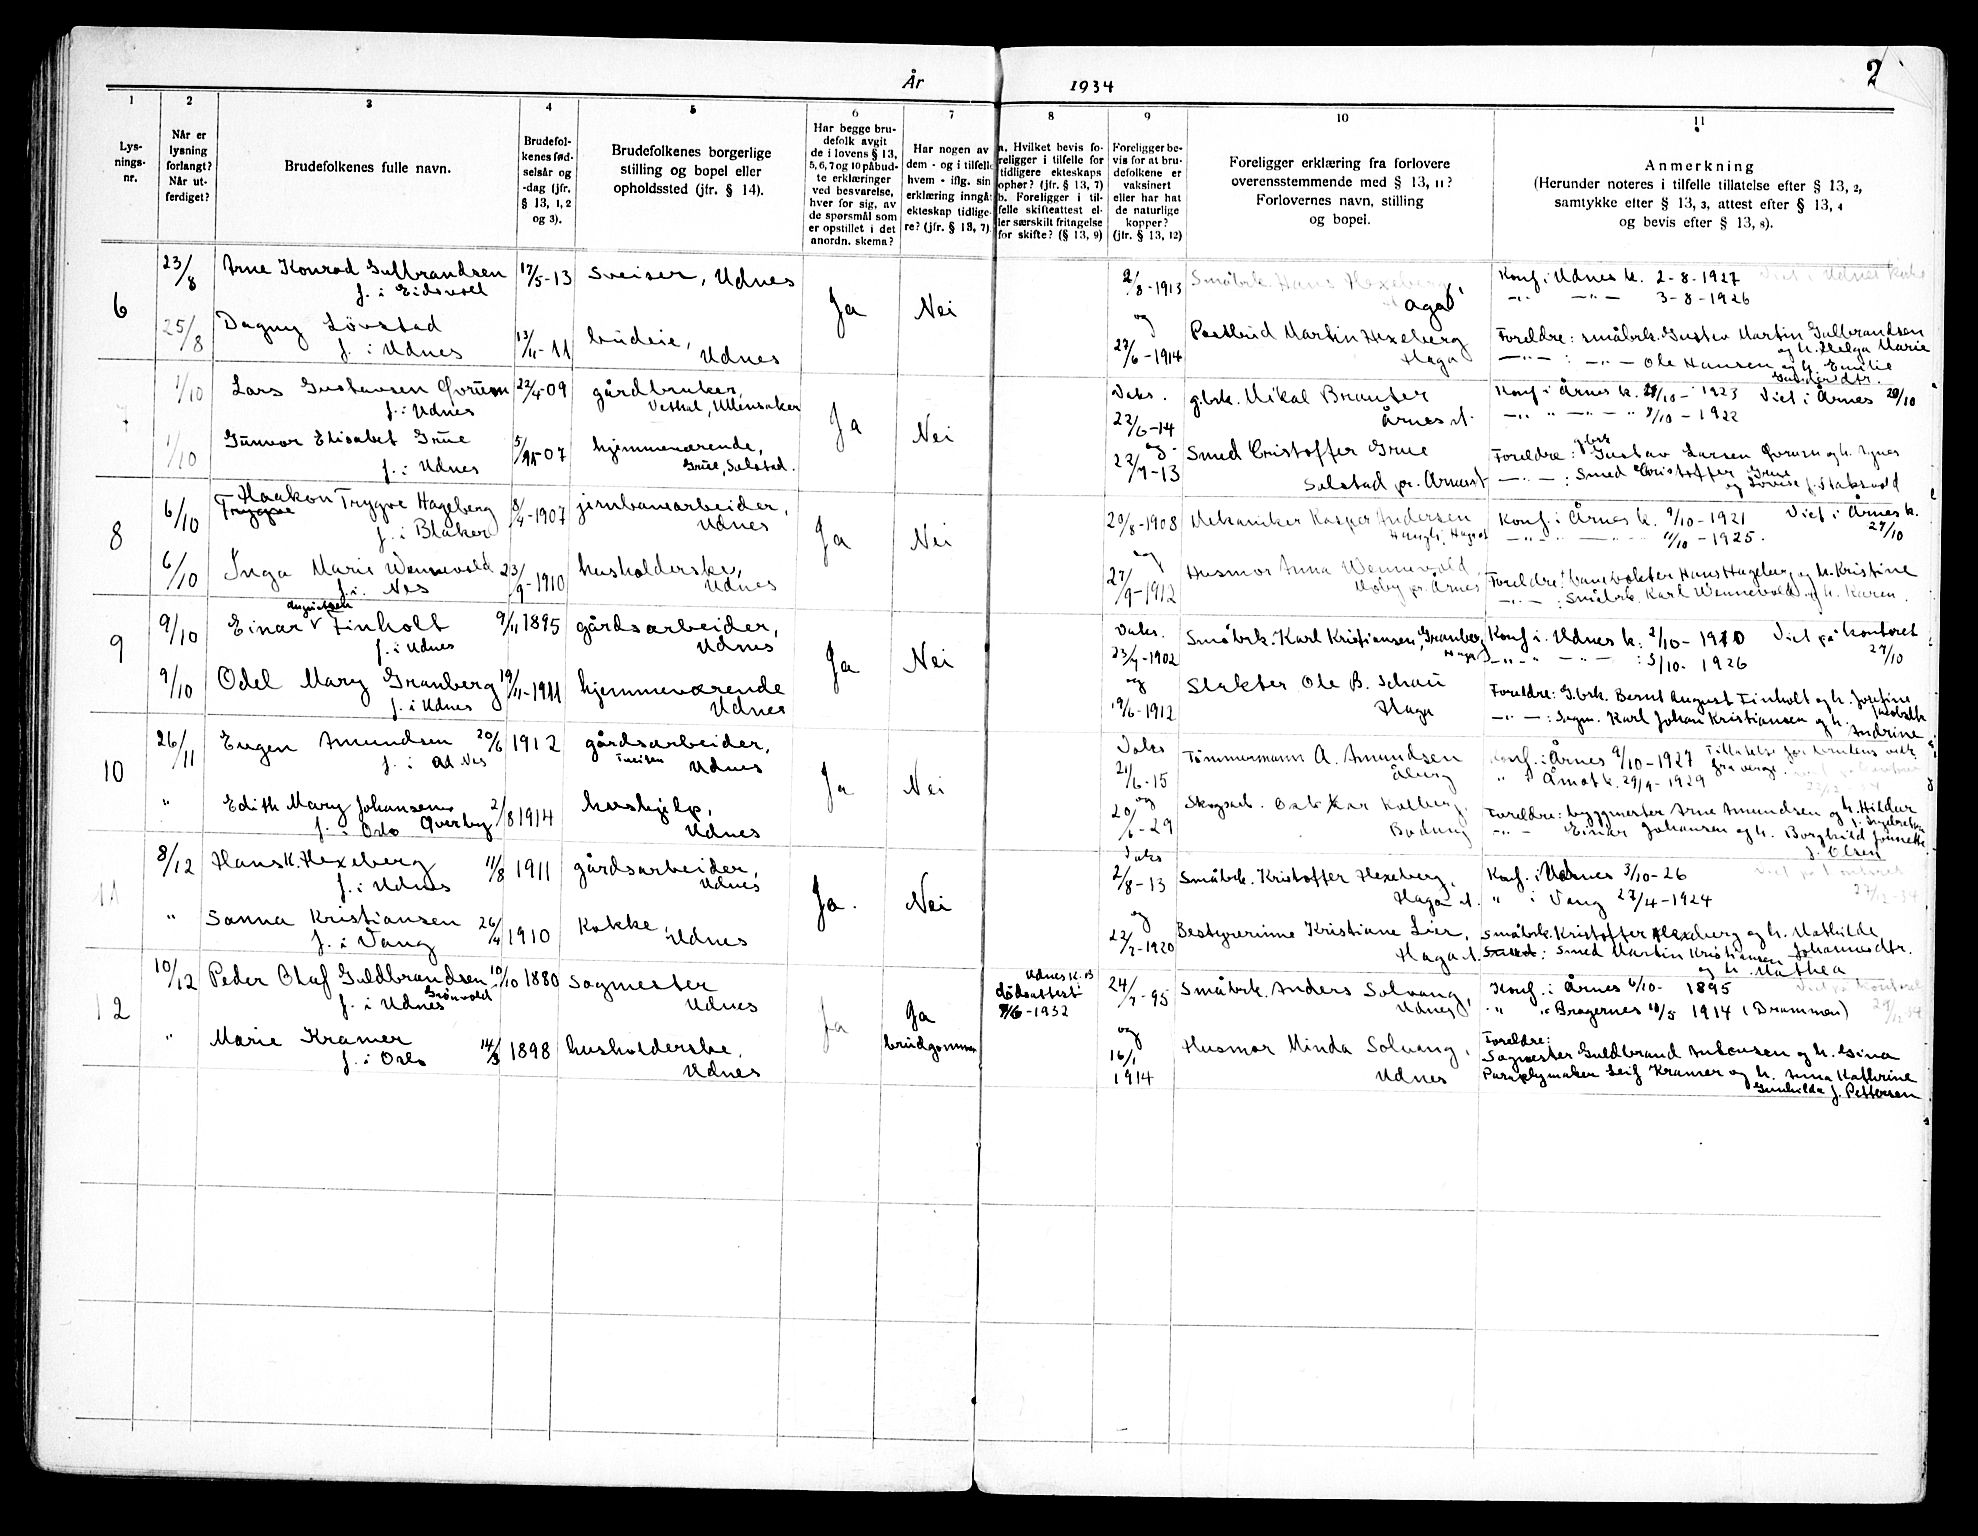 År 1934
2
1 2 3 4 5 6 7 8 9 10 11
Lys-
nings-
nr.
Når er
lysning
forlangt?
Når ut-
ferdiget?
Brudefolkenes fulle navn.
Brudefol-
kenes fød-
selsår og
-dag (jfr.
§ 13, 1, 2
og 3).
Brudefolkenes borgerlige
stilling og bopel eller
opholdssted (jfr. § 14).
Har begge bru-
defolk avgit
de i lovens § 13,
5, 6, 7 og 10 påbud-
te erklæringer
ved besvarelse,
hver for sig, av
de spørsmål som
er opstillet i det
anordn. skema?
Har nogen av
dem - og i tilfelle
hvem - iflg. sin
erklæring inngått
ekteskap tidlige-
re? (jfr. § 13, 7).
a. Hvilket bevis fo-
religger i tilfelle for
tidligere ekteskaps
ophør? (jfr. § 13, 7)
b. Foreligger i til-
felle skifteattest el-
ler særskilt fritagelse
for skifte? (§ 13, 9)
Foreligger be-
vis for at bru-
defolkene er
vaksinert
eller har hat
de naturlige
kopper?
(jfr. § 13, 12)
Foreligger erklæring fra forlovere
overensstemmende med § 13, 11?
Forlovernes navn, stilling
og bopel.
Anmerkning
(Herunder noteres i tilfelle tillatelse efter § 13, 2,
samtykke efter § 13, 3, attest efter § 13, 4
og bevis efter § 13, 8).
6
23/8 Arne Konrad Gulbrandsen 17/5-13 Sveiser, Udnes
f. i Eidsvoll
Ja Nei
2/8-1913 Småbrk. Hans Hexeberg,
Haga
Konf. i Udnes k. 2-8-1927 Viet i Udnes kirke
-„- -„- 3-8-1926
25/8 Dagny Løvstad 13/11-11 budeie,
f. i Udnes Udnes
og
27/6-1914 Postbud Martin Hexeberg
Haga
Foreldre: småbrk. Gustav Martin Gulbrandsen
og h. Helga Marie
-„- : -„- Ole Hansen og h. Emilie
Gundersdtr.
7
1/10 Lars Gustavsen Qvrum 22/4-09 gårdbruker,
f. i Udnes Vethal, Ullensaker
Ja Nei
Vaks.
22/6-14 g.brk. Mikal Brauter
Årnes st.
Konf. i Årnes k. 21/10-1923 Viet i Årnes 20/10
-„- „ -„- „ 8/10-1922
1/10 Gunvor Elisabet Grue 5/11-07 hjemmeværende,
f. i Udnes Grue, Solstad.
og
22/9-13 Smed Cristoffer Grue
Solstad pr. Årnes st
Foreldre: g.brk Gustav Larsen Qvrum og h. Agnes
-„- : Smed Cristoffer Grue
og Lovise f. Staksvold
8
6/10 Haakon Trygve Hageberg 8/4-1907 jernbanearbeider,
f. i Blaker Udnes
Ja Nei
20/8-1908 Mekaniker Kasper Andersen
Konf. i Årnes k. 9/10-1921 Viet i Årnes k.
11/10-1925. 27/10
6/10 Inga Marie Wennevold 23/9-1910 husholderske,
f. i. Nes Udnes
og
27/9-1912 Husmor Anna Wennevold,
Moby pr. Årnes
Foreldre: banevokter Hans Hageberg og h. Kristine
-„- : Småbrk. Karl Wennevold og h. Karen.
9
9/10 Einar Augustsen Finholt 9/11 1895 gårdsarbeider,
f. i Udnes Udnes
Ja Nei
Vaks.
23/9-1902 Småbrk. Karl Kristiansen, Granberg
Haga
Konf. i. Udnes k. 2/10-1910 Viet på kontoret
-„- -„- : 3/10-1926 27/10
9/10 Odel Mary Granberg 19/11-1911 hjemmeværende
f. i Udnes Udnes
og
19/6-1912 Slakter Ole B. Schau
Haga
Foreldre: G.brk. Bernt August Finholt og h. Josefine
Jacobsdtr.
-„- : Sagm. Karl Johan Kristiansen og h. Andrine
10
26/11 Eugen Amundsen 20/6 1912 gårdsarbeider,
f. i Ad Nes Udnes
Ja Nei
Vaks
21/6-15 Tømmermann A. Amundsen
Åberg
Konf. i Årnes 9/10-1927 Tillatelse for brudens vedk.
„ i Åmot k. 29/9-1929 fra verge.
„ Edith Mary Johansen 2/8 1914 hushjelp,
f. i Oslo Qverby Udnes
og
20/6-29 Skogsarb. Oskar Kolberg,
Bodung
Foreldre: byggmester Arne Amundsen og h. Hildur
„ - Einar Johansen og h. Borghild Jeanette
f. Olsen
11
8/12 Hans K. Hexeberg 11/8 1911 gårdsarbeider,
f. i Udnes Udnes
Ja. Nei
Vaks
2/8-13 Småbrk. Kristoffer Hexeberg,
Haga st.
Konf. i Udnes 3/10-26
„ i Vang 27/4-1924
„ Sanna Kristiansen 26/4 1910 Kokke,
f. i Vang Udnes
og
22/2-1920 Bestyrerinne Kristiane Lier,
Haga st.
Småbrk. Kristoffer Hexeberg og h. Mathilde
Johannesdtr.
Smed Martin Kristiansen
og h. Mathea
12
10/12 Peder Olaf Guldbrandsen 10/10 1880 Sagmester
f. i Udnes Grønvold Udnes
Ja Ja
brudgommen
Udnes k. B
dødsattest
9/6-1932
24/7-95 Småbrk. Anders Solvang,
Udnes
Konf. i Årnes 6/10- 1895 Viet på kontoret
„ „ Bragernes 10/5 1914 (Drammen)
„ Marie Kramer 14/3 1898 husholderske,
f. i Oslo Udnes
og
16/1
1914
Husmor Minda Solvang,
Udnes
Foreldre:
Sagmester Guldbrand Antonsen og h. Gina
Paraplymaker Leif Kramer og h. Anna Kathrine
Gunhilda f. Pettersen